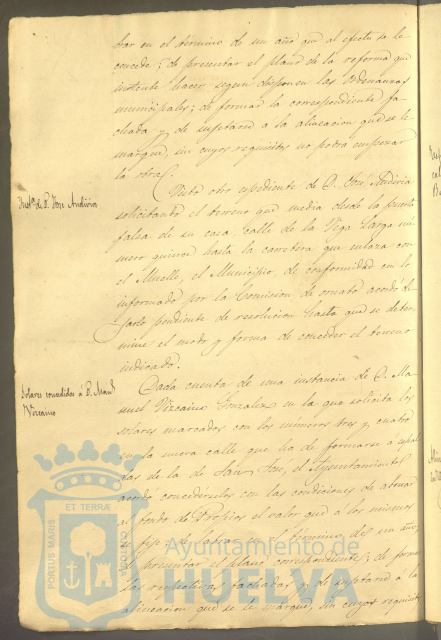 brar en el término de un año que al efecto se le
concede; de presentar el plano de la reforma que
intente hacer segun disponen las Ordenanzas
municipales; de formar la correspondiente fa-
chada y de sugetarse a la alineacion que se le
marque, sin cuyos requisitos no podra empezar
la obra.
Inst.ª de D. Jose Audivia
Visto otro espediente de D. José Audivia
solicitando el terreno que media desde la puerta
falsa de su casa, calle de la Vega Larga nú-
mero quince hasta la carretera que enlaza con
el Muelle, el Municipio, de conformidad con lo
informado por la Comision de ornato acordó de-
jarlo pendiente de resolucion hasta que se deter-
mine el modo y forma de conceder el terreno
indicado.
Solares concedidos á D. Man.l
Vizcaino
Dada cuenta de una instancia de D. Ma-
nuel Vizcaino Gonzalez en la que solicita los
solares marcados con los números tres y cuatro
en la nueva calle que ha de formarse á espal-
das de la de San José, el Ayuntamiento
acordó concedérselos con las condiciones de abonar
al fondo de Propios el valor que a los mismos
se fije, de labrar en el término de un año,
de presentar el plano correspondiente; de formar
las respectivas fachadas y de sugetarse a la
alineacion que se le marque, sin cuyos requisitos
PORTUS MARIS ET TERRAE CUSTODIA
Ayuntamiento de
HUELVA